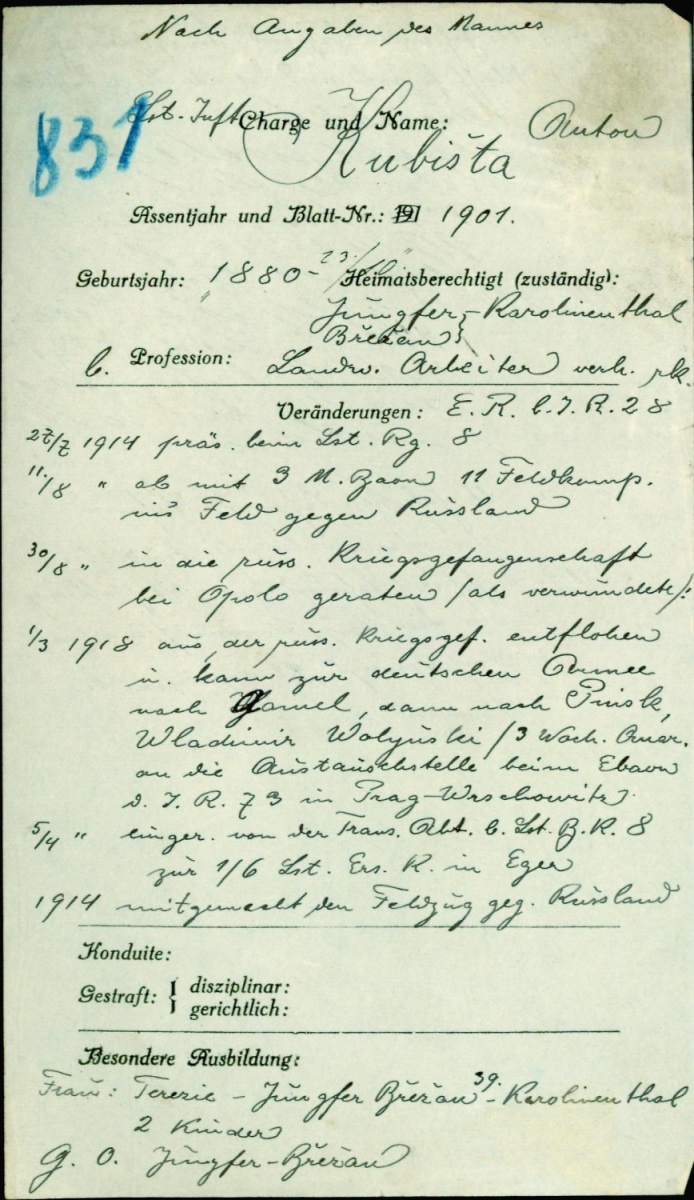 Nach Angaben des Mannes
831
Lst. Inft. Charge und Name: Anton
Kubišta
Assentjahr und Blatt-Nr.: 191 1901.
Geburtsjahr: 1880 - 23./ Heimatsberechtigt (zuständig):
Jungfer - Karolinenthal
Břežan
b. Profession: Landw. Arbeiter verh. rk.
Veränderungen: E. R. b. I. R. 28
27/7 1914 präs. beim Lst. Rg. 8
11/8 " ab mit 3 M. Baon 11 Feldkomp.
ins Feld gegen Russland
30/8 " in die russ. Kriegsgefangenschaft
bei Opolo geraten /als verwundete/:
1/3 1918 aus der russ. Kriegsgef. entflohen
u. kam zur deutschen Armee
nach Gomel, dann nach Pinsk,
Wladimir Wolynski /3 Woch. Quar.
an die Austauschstelle beim Ebaon
d. I. R. 73 in Prag-Wrschowitz).
5/4 " einger. von der Trans. Abt. b. Lst. B. K. 8
zur 1/6 Lst. Ers. K. in Eger
1914 mitgemacht den Feldzug geg. Russland
Konduite:
Gestraft: { disziplinar:
gerichtlich:
Besondere Ausbildung:
Frau: Terezie - Jungfer Břežan 39. - Karolinenthal
2 Kinder
G. O. Jungfer-Břežan